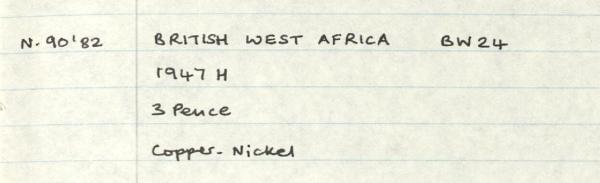 N.90'82 BRITISH WEST AFRICA BW24
1947 H
3 Pence
Copper-Nickel